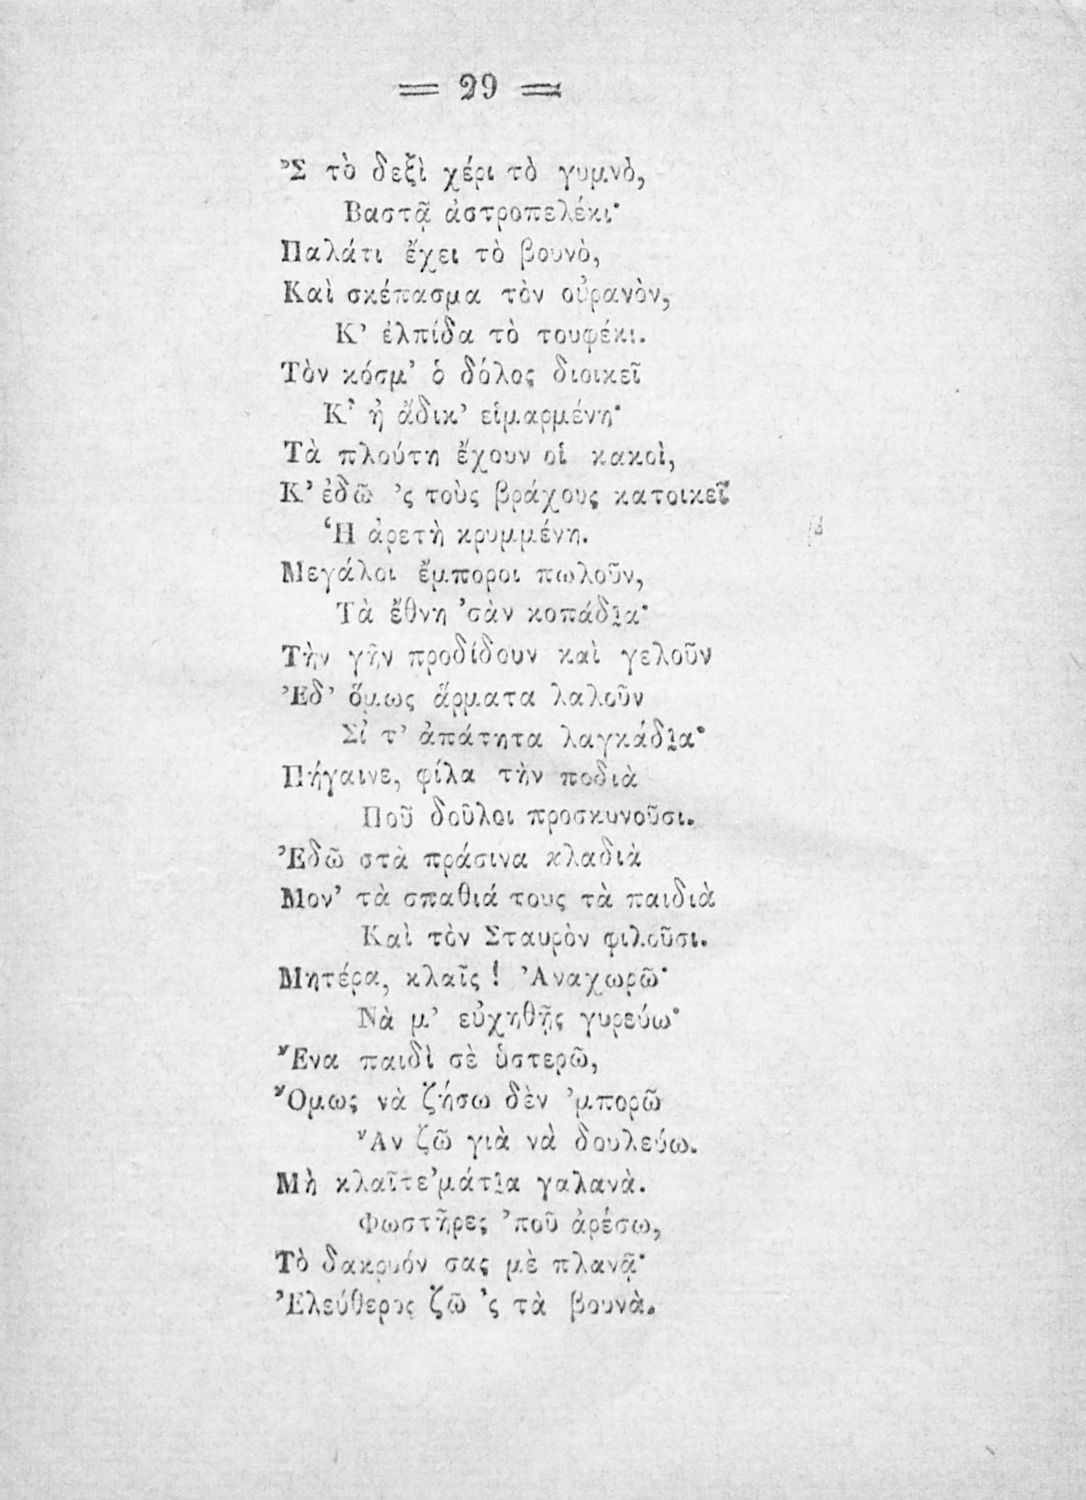 = 29 =
Ἐς τὸ δεξὶ χέρι τὸ γυμνὸ,
Βαστᾷ ἀστροπελέκι·
Παλάτι ἔχει τὸ βουνὸ,
Καὶ σκέπασμα τὸν οὐρανὸν,
Κ' ἐλπίδα τὸ τουφέκι.
Τὸν κόσμ' ὁ δόλος διοικεῖ
Κ' ἡ ἄδικ' εἱμαρμένη·
Τὰ πλούτη ἔχουν οἱ κακοὶ,
Κ' ἐδῶ 'ς τοὺς βράχους κατοικεῖ
Ἡ ἀρετὴ κρυμμένη.
Μεγάλοι ἔμποροι πωλοῦν,
Τὰ ἔθνη 'σὰν κοπάδια·
Τὴν γῆν προδίδουν καὶ γελοῦν
Ἐδ' ὅμως ἅρματα λαλοῦν
Σἰ τ' ἀπάτητα λαγκάδια·
Πήγαινε, φίλα τὴν ποδιὰ
Ποῦ δοῦλοι προσκυνοῦσι.
Ἐδῶ στὰ πράσινα κλαδιὰ
Μον' τὰ σπαθιά τους τὰ παιδιὰ
Καὶ τὸν Σταυρὸν φιλοῦσι.
Μητέρα, κλαῖς! Ἀναχωρῶ·
Νὰ μ' εὐχηθῇς γυρεύω·
Ἕνα παιδὶ σὲ ὑστερῶ,
Ὅμως νὰ ζήσω δὲν 'μπορῶ
Ἂν ζῶ γιὰ νὰ δουλεύω.
Μὴ κλαῖτε 'μάτια γαλανὰ.
Φωστῆρες 'ποῦ ἀρέσω,
Τὸ δακρυόν σας μὲ πλανᾷ·
Ἐλεύθερος ζῶ 'ς τὰ βουνὰ.